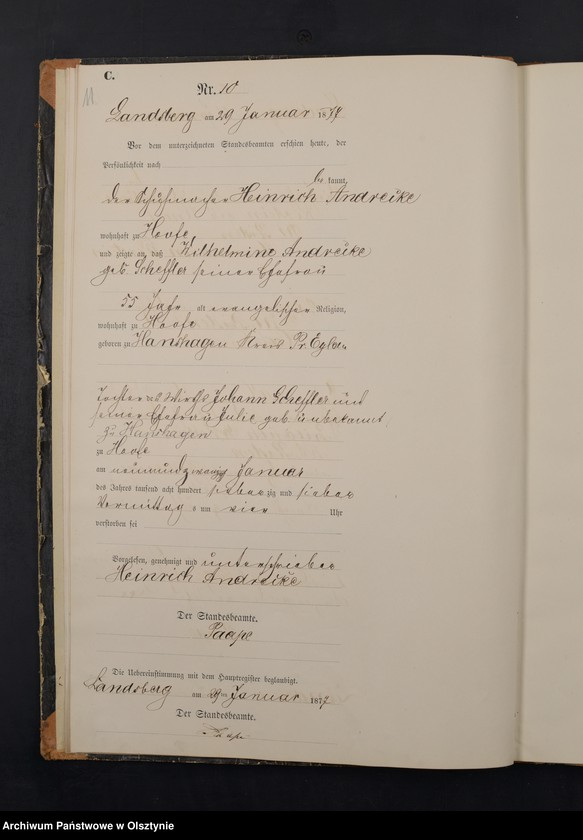 C.
11
Nr. 10
Landsberg am 29 Januar 1877
Vor dem unterzeichneten Standesbeamten erschien heute, der
Persönlichkeit nach
be kannt,
der Schuhmacher Heinrich Andreike
wohnhaft zu Hoofe
und zeigte an, daß Wilhelmine Andreike
geb. Scheffler seine Ehefrau
55 Jahr alt evangelischer Religion,
wohnhaft zu Hoofe
geboren zu Hanshagen Kreis Pr. Eylau
Tochter des Wirths Johann Scheffler und
seiner Ehefrau Julie geb. unbekannt
zu Hanshagen
zu Hoofe
am neunundzwanzig Januar
des Jahres tausend acht hundert siebenzig und sieben
Vormittag s um vier Uhr
verstorben sei
Vorgelesen, genehmigt und unterschrieben
Heinrich Andreike
Der Standesbeamte.
Paape
Die Uebereinstimmung mit dem Hauptregister beglaubigt.
Landsberg am 29 Januar 1877
Der Standesbeamte.
Archiwum Państwowe w Olsztynie